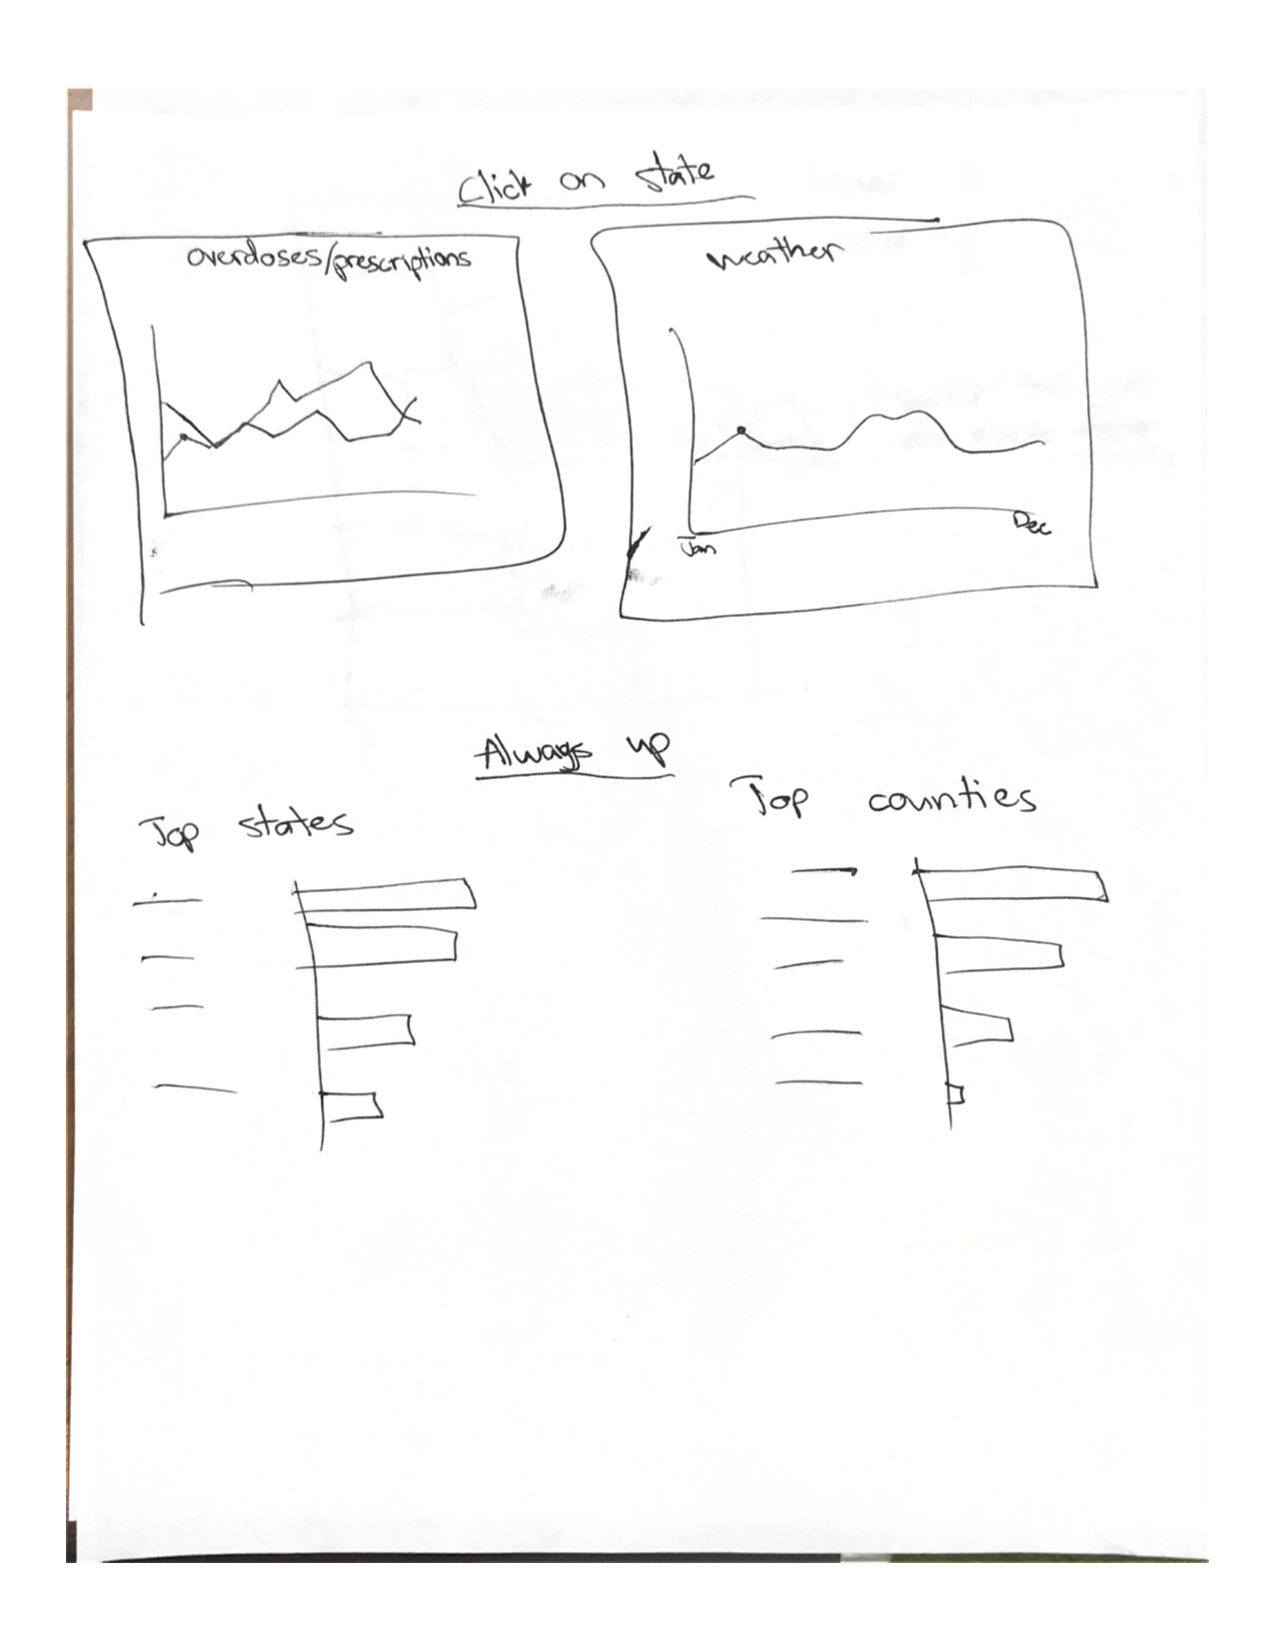 Click on state
overdoses/prescriptions
weather
Jan
Dec
Always up
Top states
Top counties